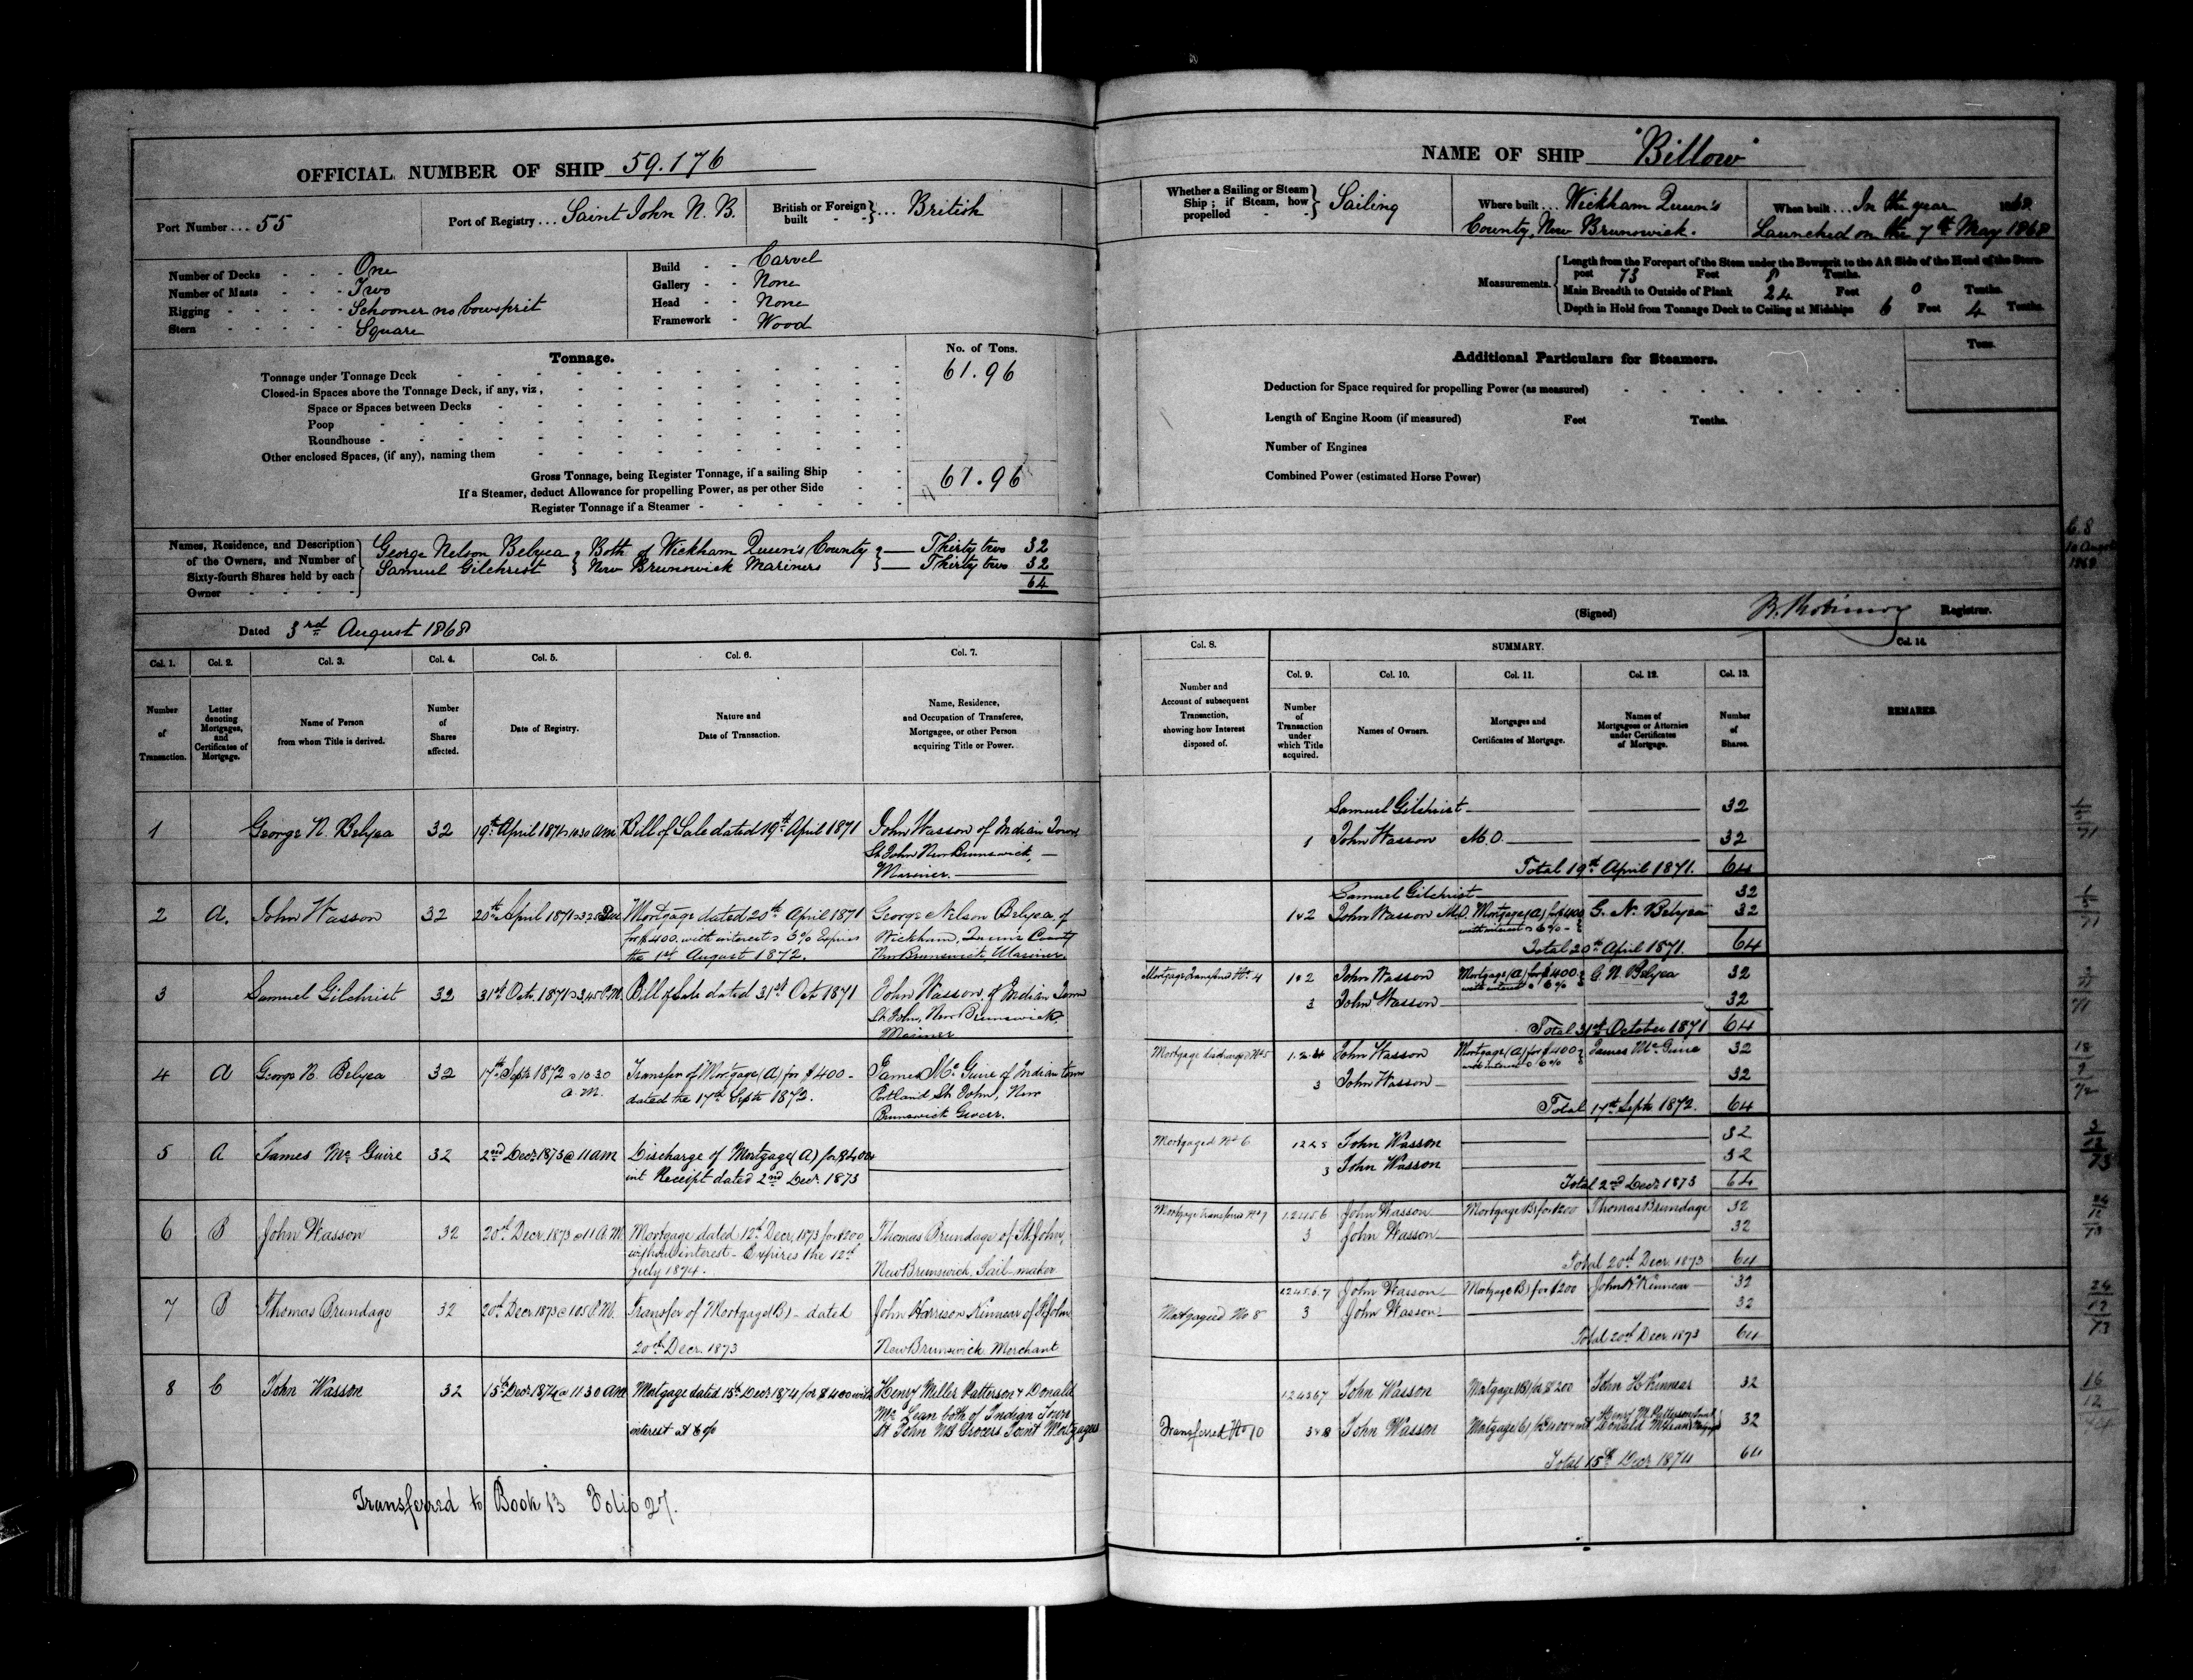 OFFICIAL NUMBER OF SHIP 59.176
Port Number ... 55
Port of Registry ... Saint John N. B.
British or Foreign built } ... British
Number of Decks - - - One
Number of Masts - - - Two
Rigging - - - - - Schooner no bowsprit
Stern - - - - - Square
Build - - Carvel
Gallery - - None
Head - - None
Framework - Wood
Tonnage.
No. of Tons.
Tonnage under Tonnage Deck 61.96
Closed-in Spaces above the Tonnage Deck, if any, viz.,
Space or Spaces between Decks
Poop
Roundhouse
Other enclosed Spaces, (if any), naming them
Gross Tonnage, being Register Tonnage, if a sailing Ship 61.96
If a Steamer, deduct Allowance for propelling Power, as per other Side
Register Tonnage if a Steamer
Names, Residence, and Description of the Owners, and Number of Sixty-fourth Shares held by each Owner
George Nelson Belyea } Both of Wickham Queen's County } — Thirty two 32
Samuel Gilchrist } New Brunswick Mariners } — Thirty two 32
64
Dated 3rd August 1868
Col. 1. Col. 2. Col. 3. Col. 4. Col. 5. Col. 6. Col. 7.
Number of Transaction.
Letter denoting Mortgages, and Certificates of Mortgage.
Name of Person from whom Title is derived.
Number of Shares affected.
Date of Registry.
Nature and Date of Transaction.
Name, Residence, and Occupation of Transferee, Mortgagee, or other Person acquiring Title or Power.
1 George N. Belyea 32 19th April 1871 10.30 AM Bill of Sale dated 19th April 1871 John Wasson of Indian Town
St. John New Brunswick, —
Mariner. —
2 A. John Wasson 32 20th April 1871 Mortgage dated 20th April 1871 George Nelson Belyea of
for $400. with interest Expires Wickham, Queens County
the 1st August 1872. New Brunswick, Mariner.
3 Samuel Gilchrist 32 31st Oct. 1871 3.45 P.M. Bill of Sale dated 31st Oct. 1871 John Wasson of Indian Town
St. John, New Brunswick,
Mariner
4 A George N. Belyea 32 17th Septr 1872 @ 10 30 Transfer of Mortgage (A) for $400 - James McGuire of Indian town
a.m. dated the 17th Septr 1872. Portland St. John, New
Brunswick Grocer.
5 A James McGuire 32 2nd Decr 1873 @ 11 am Discharge of Mortgage (A) for $400 &
int Receipt dated 2nd Decr. 1873
6 B John Wasson 32 20th Decr. 1873 @ 11 A.M. Mortgage dated 12th Decr. 1873 for $200 Thomas Brundage of St John,
without interest - Expires the 12th
July 1874. New Brunswick, Sail-maker
7 B Thomas Brundage 32 20th Decr 1873 @ 1.05 P.M. Transfer of Mortgage (B) - dated John Harrison Kinnear of St John
20th Decr. 1873 New Brunswick Merchant
8 C John Wasson 32 15th Decr 1874 @ 11 30 AM Mortgage dated 15th Decr 1874 for $400 with Henry Miller Patterson & Donald
McLean both of Indian Town
interest at 6 % St John NB Grocers Joint Mortgagees
Transferred to Book 13 Folio 27.
NAME OF SHIP "Billow"
Whether a Sailing or Steam Ship; if Steam, how propelled } Sailing
Where built ... Wickham Queen's
County, New Brunswick.
When built ... In the year 1868
Launched on the 7th May 1868
Measurements.
Length from the Forepart of the Stem under the Bowsprit to the Aft Side of the Head of the Stern-post 73 Feet 8 Tenths.
Main Breadth to Outside of Plank 24 Feet 0 Tenths.
Depth in Hold from Tonnage Deck to Ceiling at Midships 6 Feet 4 Tenths.
Additional Particulars for Steamers.
Tons.
Deduction for Space required for propelling Power (as measured)
Length of Engine Room (if measured) Feet Tenths.
Number of Engines
Combined Power (estimated Horse Power)
10 August
1868
(Signed) Registrar.
Col. 8. SUMMARY. Col. 14.
Col. 9. Col. 10. Col. 11. Col. 12. Col. 13.
Number and Account of subsequent Transaction, showing how Interest disposed of.
Number of Transaction under which Title acquired.
Names of Owners.
Mortgages and Certificates of Mortgage.
Names of Mortgagees or Attornies under Certificates of Mortgage.
Number of Shares.
REMARKS.
Samuel Gilchrist 32
1 John Wasson M.O. 32
Total 19th April 1871. 64
Samuel Gilchrist 32
1 & 2 John Wasson M.O. Mortgage (A) for $400 G. N. Belyea 32
with interest @ 6 %
Total 20th April 1871. 64
Mortgage Transferred No. 4 1 & 2 John Wasson Mortgage (A) for $400 G. N. Belyea 32
with interest @ 6 %
3 John Wasson 32
Total 31st October 1871 64
Mortgage discharged No 5 1.2.4 John Wasson Mortgage (A) for $400 James McGuire 32
with interest @ 6 %
3 John Wasson 32
Total 17th Septr 1872. 64
Mortgaged No 6 1245 John Wasson 32
3 John Wasson 32
Total 2nd Decr 1873 64
Mortgage transferred No 7 12456 John Wasson Mortgage B) for $200 Thomas Brundage 32
3 John Wasson 32
Total 20th Decr. 1873 64
12456.7 John Wasson Mortgage B) for $200 John H Kinnear 32
Mortgaged No 8 3 John Wasson 32
Total 20th Decr 1873 64
124567 John Wasson Mortgage (B) for $200 John H Kinnear 32
Transferred No 10 3 & 8 John Wasson Mortgage C) for $400 & int Henry M. Patterson Donald McLean 32
Total 15th Decr 1874 64